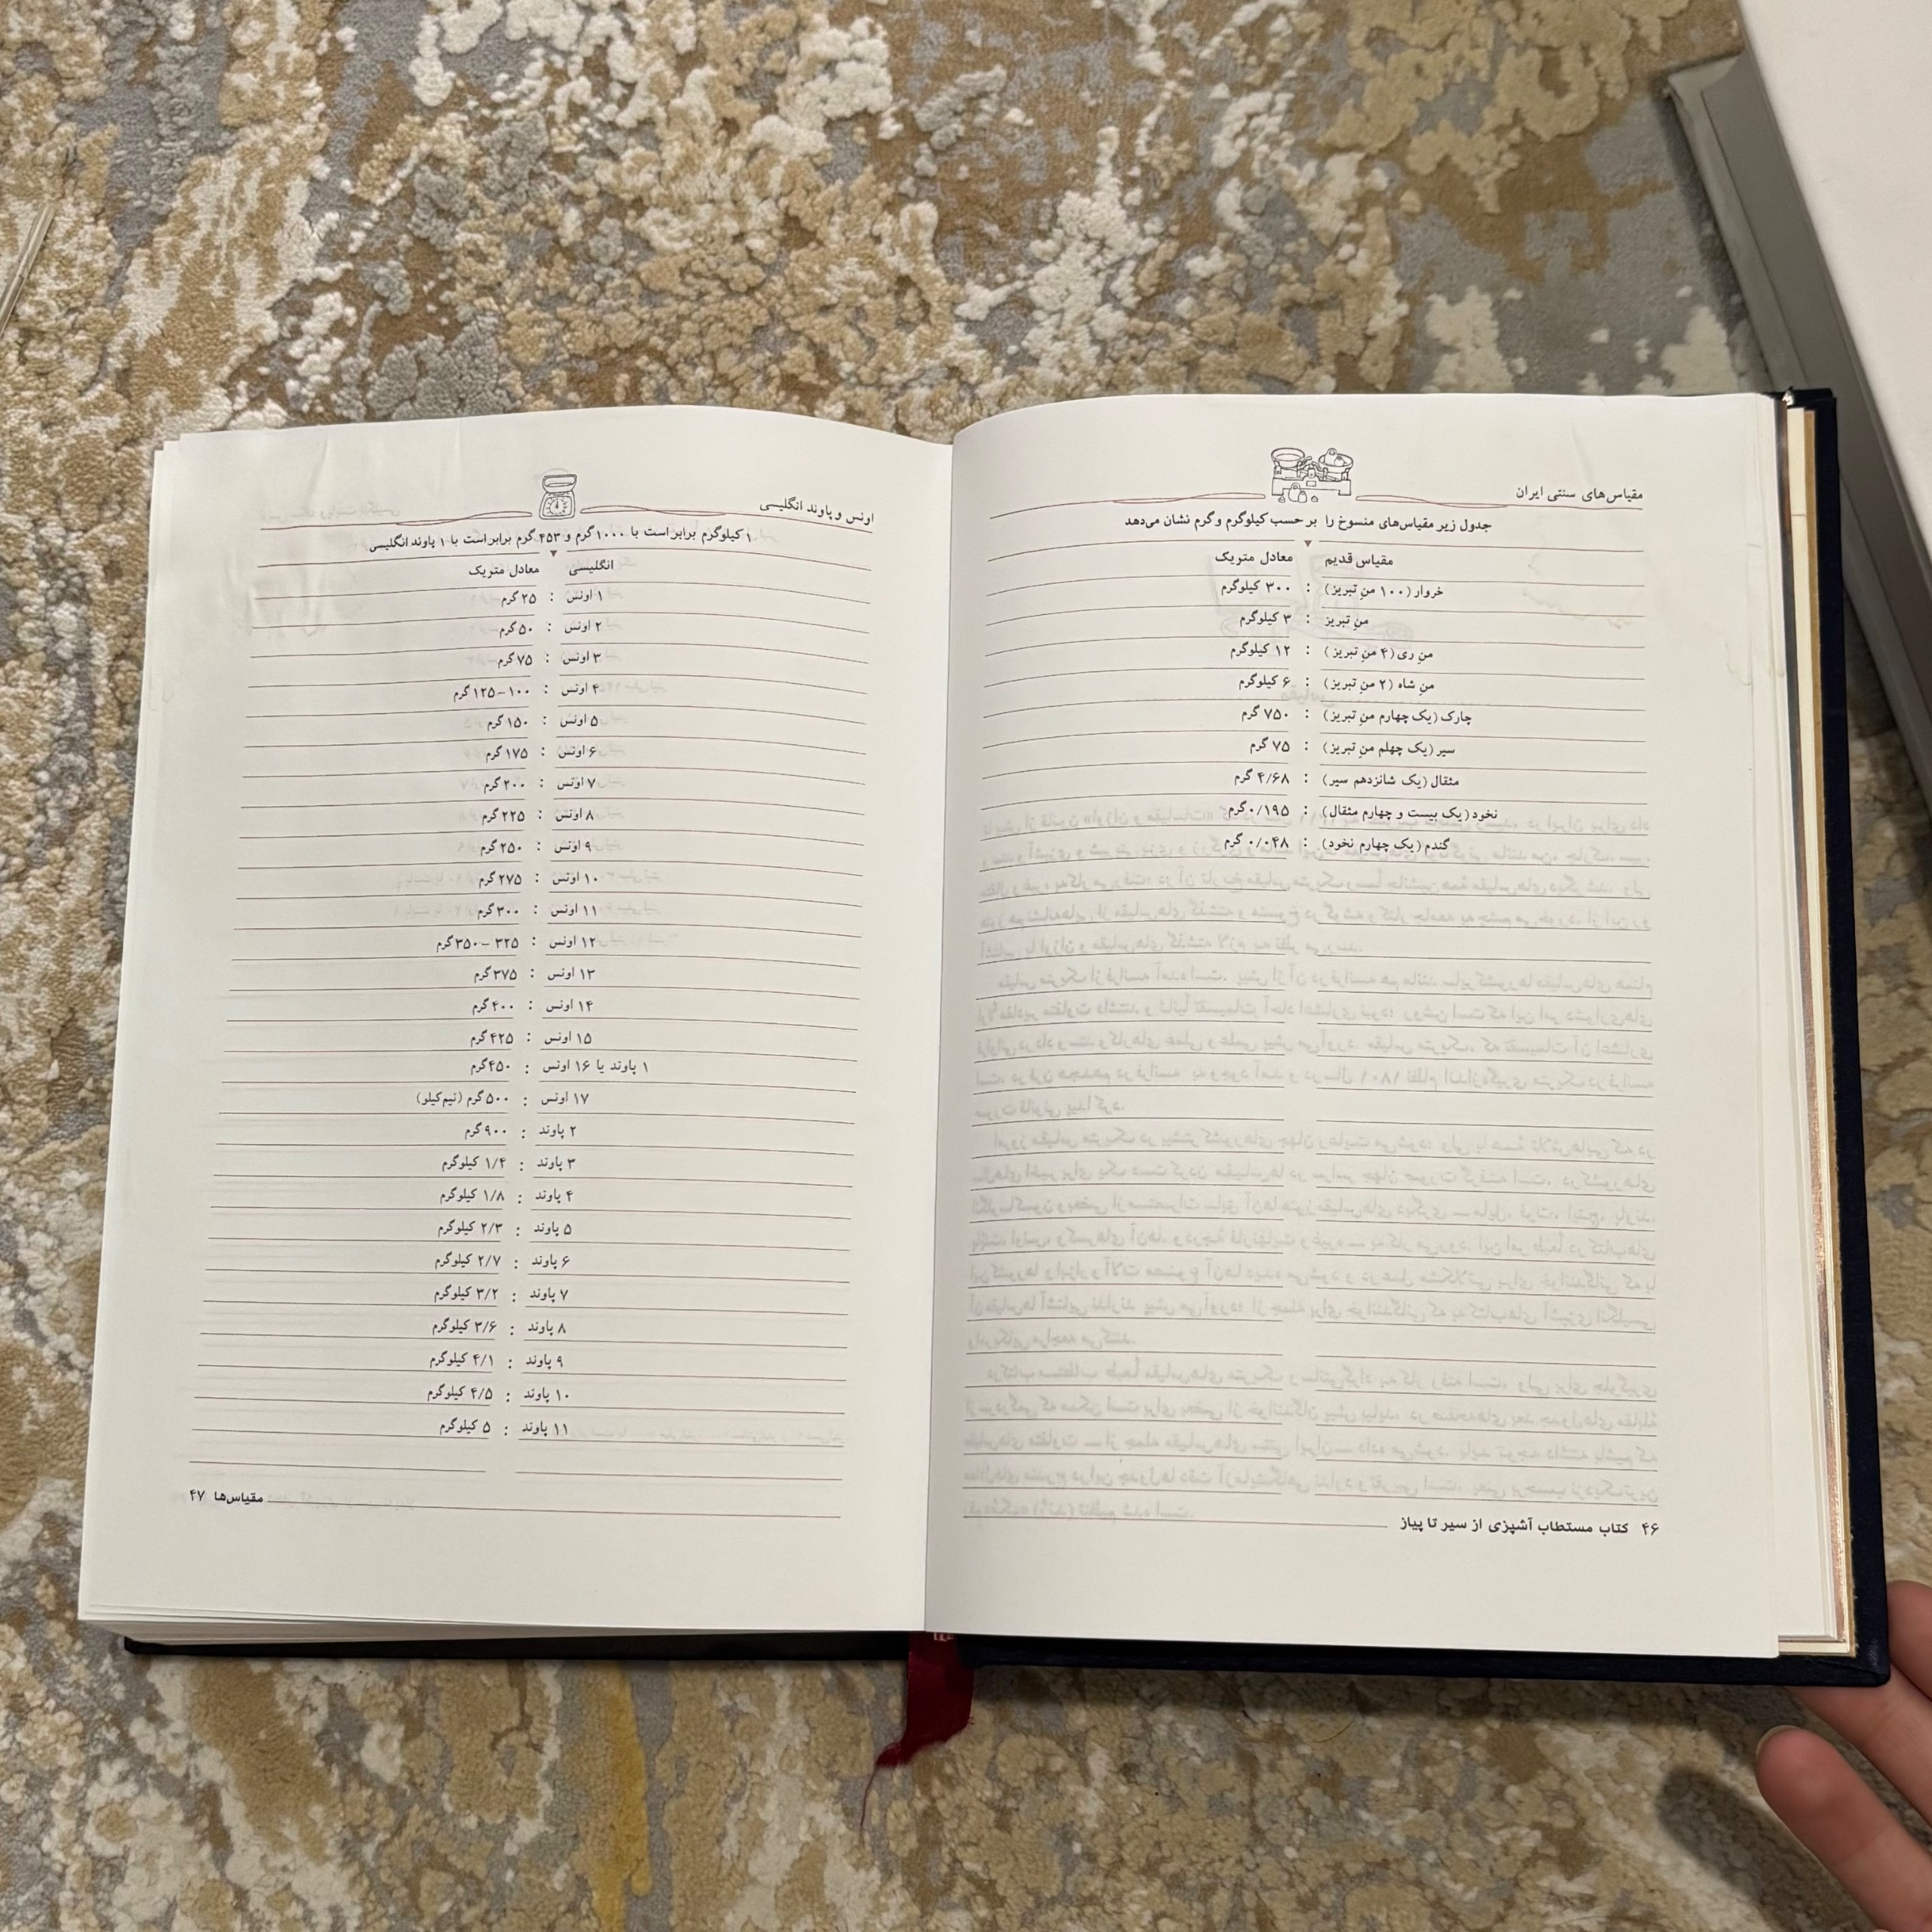 مقیاس‌های سنتی ایران
جدول زیر مقیاس‌های منسوخ را بر حسب کیلوگرم و گرم نشان می‌دهد
مقیاس قدیم معادل متریک
خروار (۱۰۰ منِ تبریز) : ۳۰۰ کیلوگرم
منِ تبریز : ۳ کیلوگرم
منِ ری (۴ منِ تبریز) : ۱۲ کیلوگرم
منِ شاه (۲ منِ تبریز) : ۶ کیلوگرم
چارک (یک چهارم منِ تبریز) : ۷۵۰ گرم
سیر (یک چهلم منِ تبریز) : ۷۵ گرم
مثقال (یک شانزدهم سیر) : ۴/۶۸ گرم
نخود (یک بیست و چهارم مثقال) : ۰/۱۹۵ گرم
گندم (یک چهارم نخود) : ۰/۰۴۸ گرم
۴۶ کتاب مستطاب آشپزی از سیر تا پیاز
اونس و پاوند انگلیسی
۱ کیلوگرم برابر است با ۱۰۰۰ گرم و ۴۵۳ گرم برابر است با ۱ پاوند انگلیسی
انگلیسی معادل متریک
۱ اونس : ۲۵ گرم
۲ اونس : ۵۰ گرم
۳ اونس : ۷۵ گرم
۴ اونس : ۱۰۰–۱۲۵ گرم
۵ اونس : ۱۵۰ گرم
۶ اونس : ۱۷۵ گرم
۷ اونس : ۲۰۰ گرم
۸ اونس : ۲۲۵ گرم
۹ اونس : ۲۵۰ گرم
۱۰ اونس : ۲۷۵ گرم
۱۱ اونس : ۳۰۰ گرم
۱۲ اونس : ۳۲۵ – ۳۵۰ گرم
۱۳ اونس : ۳۷۵ گرم
۱۴ اونس : ۴۰۰ گرم
۱۵ اونس : ۴۲۵ گرم
۱ پاوند یا ۱۶ اونس : ۴۵۰ گرم
۱۷ اونس : ۵۰۰ گرم (نیم‌کیلو)
۲ پاوند : ۹۰۰ گرم
۳ پاوند : ۱/۴ کیلوگرم
۴ پاوند : ۱/۸ کیلوگرم
۵ پاوند : ۲/۳ کیلوگرم
۶ پاوند : ۲/۷ کیلوگرم
۷ پاوند : ۳/۲ کیلوگرم
۸ پاوند : ۳/۶ کیلوگرم
۹ پاوند : ۴/۱ کیلوگرم
۱۰ پاوند : ۴/۵ کیلوگرم
۱۱ پاوند : ۵ کیلوگرم
مقیاس‌ها ۴۷